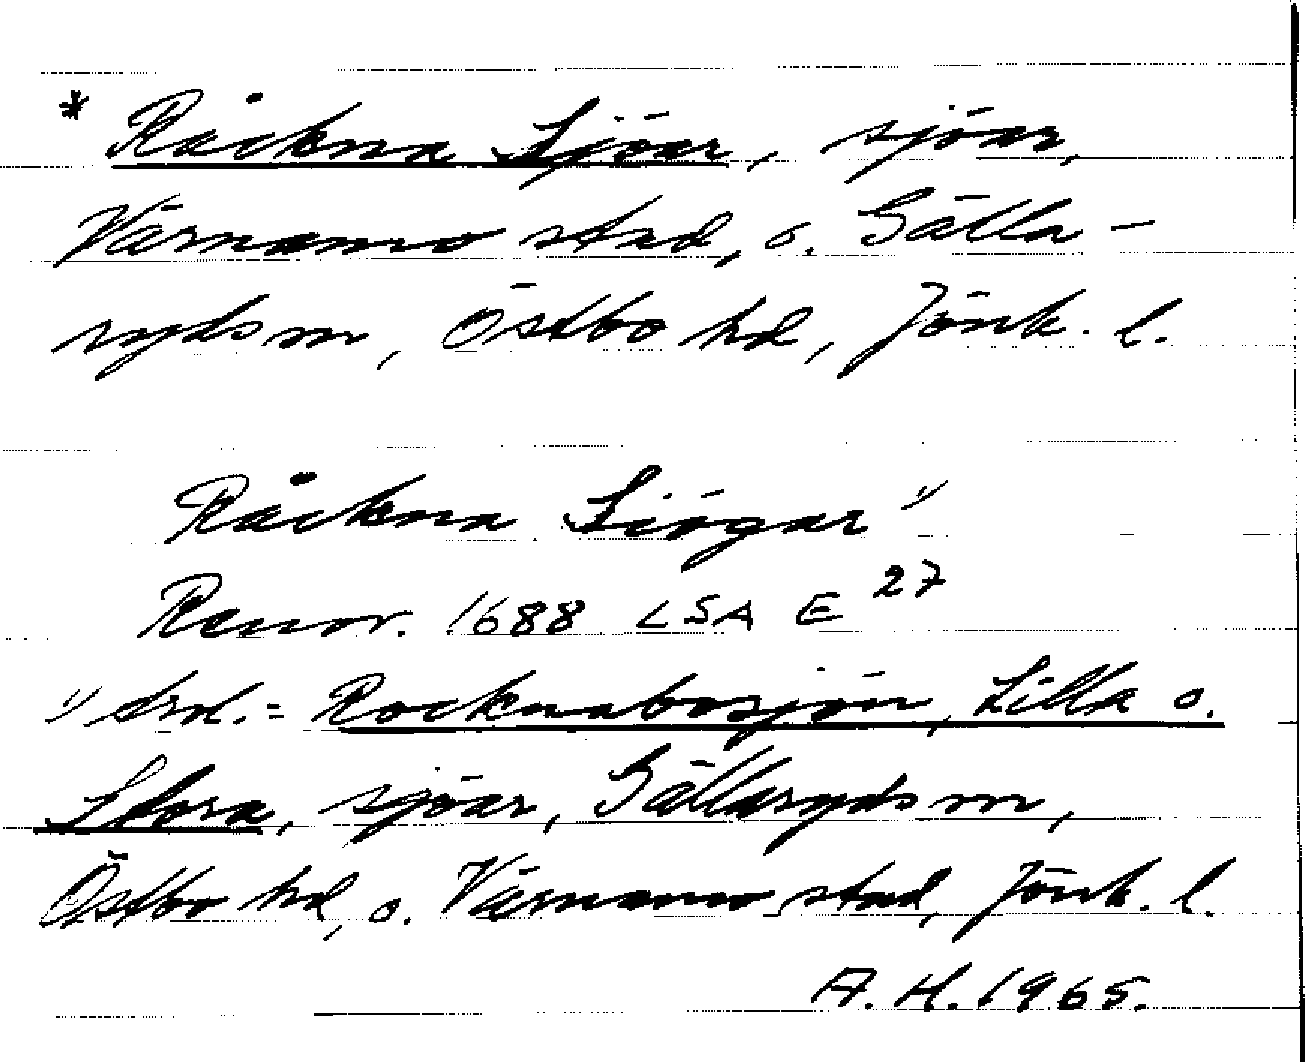 * Råckna Sjöar, sjöar,
Värnamo stad, o. Gälla-
ryds sn, Östbo hd, Jönk. l.
Råckna Siögar ¹⁾
Renov. 1688 LSA E 27
¹⁾ Srd. = Rocknabosjön, Lilla o.
Stora, sjöar, Gällaryds sn,
Östbo hd, o. Värnamo stad, Jönk. l.
A. H. 1965.